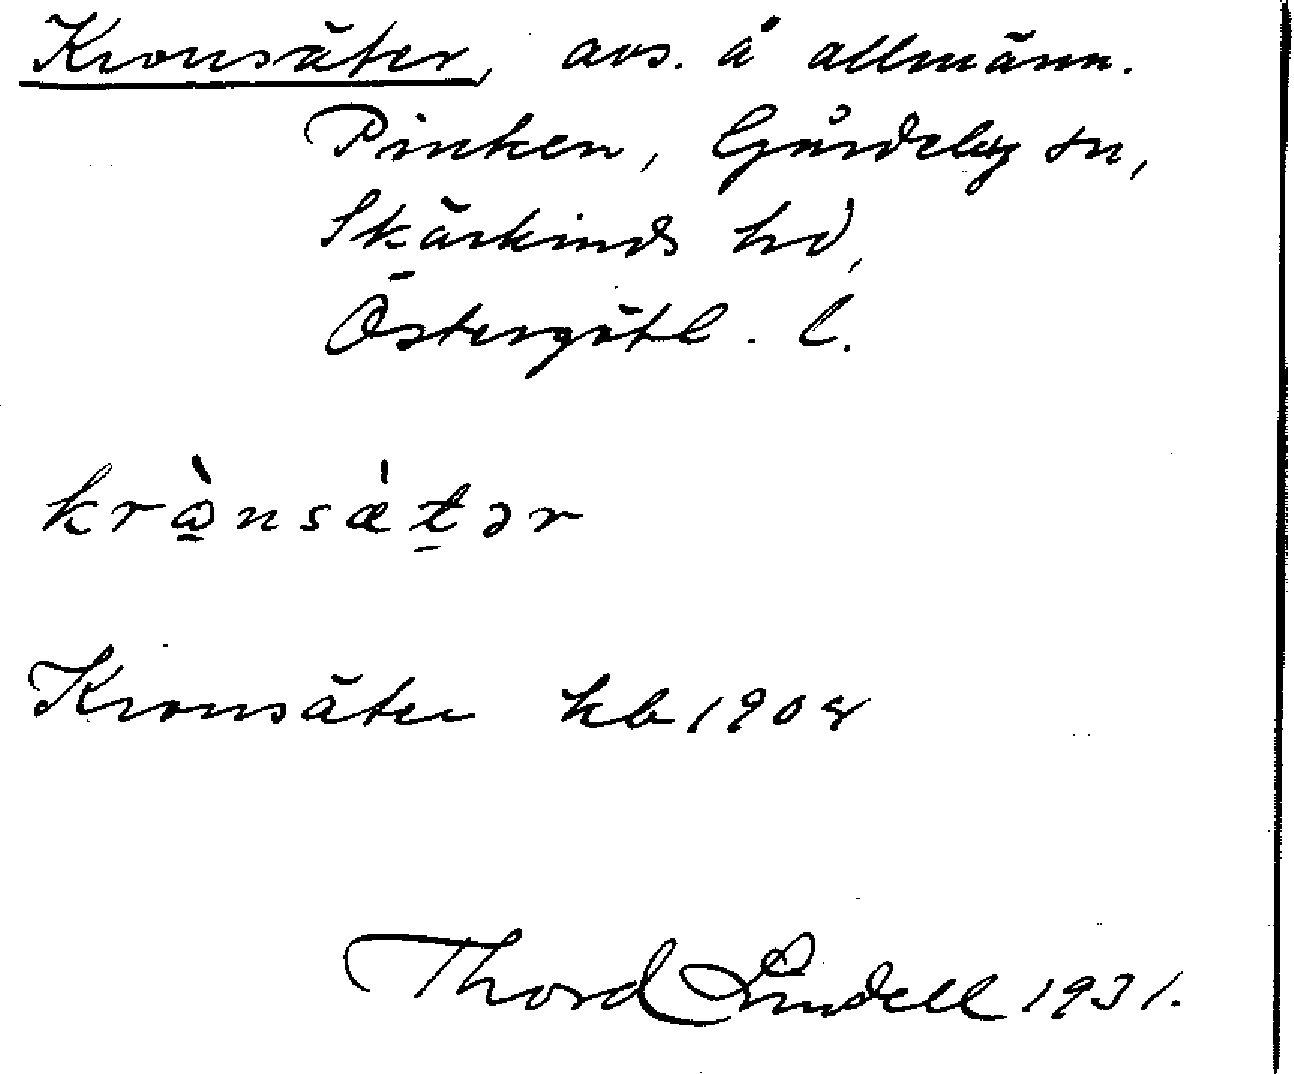 Kronsäter, avs. å allmänn.
Pinken, Gårdeby sn,
Skärkinds hd,
Östergötl. l.
krɷ̀nsæ̀tər
Kronsäter kb 1908
Thord Lindell 1931.